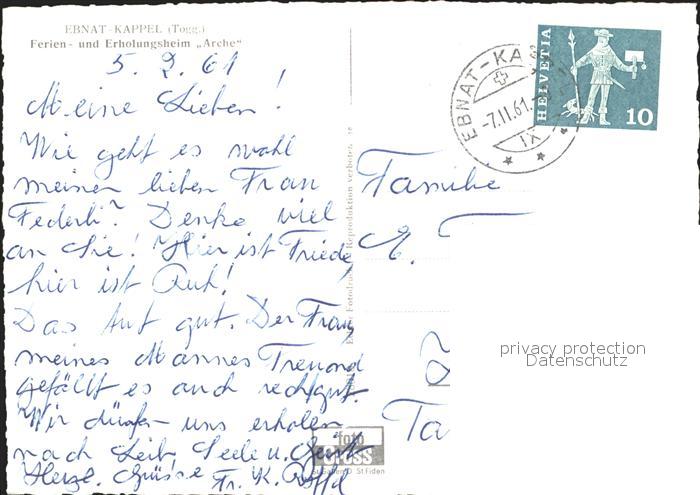 EBNAT-KAPPEL (Togg.)
Ferien- und Erholungsheim „Arche“
5. 2. 61
Meine Lieben!
Wie geht es wohl
meiner lieben Frau
Federli? Denke viel
an Sie! Hier ist Friede,
hier ist Ruh!
Das tut gut. Der Frau
meines Mannes Freund
gefällt es auch recht gut.
Wir dürfen uns erholen
nach Leib, Seele u. Geist
Herzl. Grüsse Fr. K.
Reproduktion verboten
foto
gross
St. Gallen O St Fiden
EBNAT-KA
-7.II.61.
HELVETIA
10
Familie
E. T
Ta
privacy protection
Datenschutz